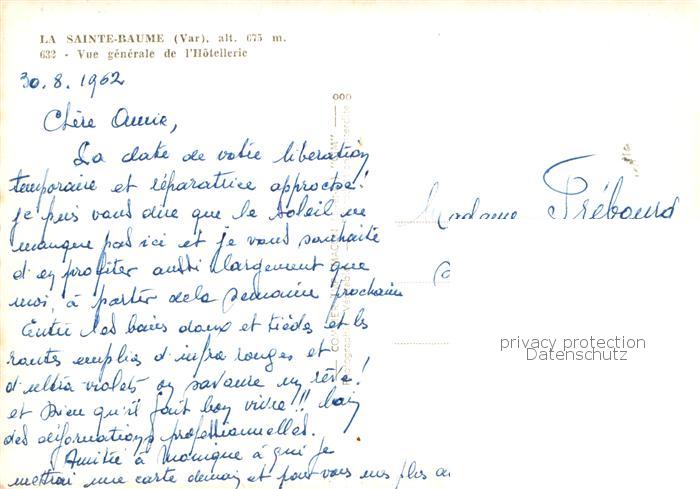 LA SAINTE-BAUME (Var), alt. 675 m.
632 - Vue générale de l'Hôtellerie
30.8.1962
Chère Annie,
La date de votre libération
temporaire et réparatrice approche!
je puis vous dire que le soleil ne
manque pas ici et je vous souhaite
d'en profiter aussi largement que
moi, à partir de la semaine prochaine
Entre les bains doux et tièdes et les
routes emplies d'infra rouges et
d'ultra violets on savoure un rêve!
et Dieu qu'il fait bon vivre!!! loin
des déformations professionnelles.
Amitié à Monique à qui je
mettrai une carte demain et pour vous mes plus
Madame Prébourd
privacy protection
Datenschutz